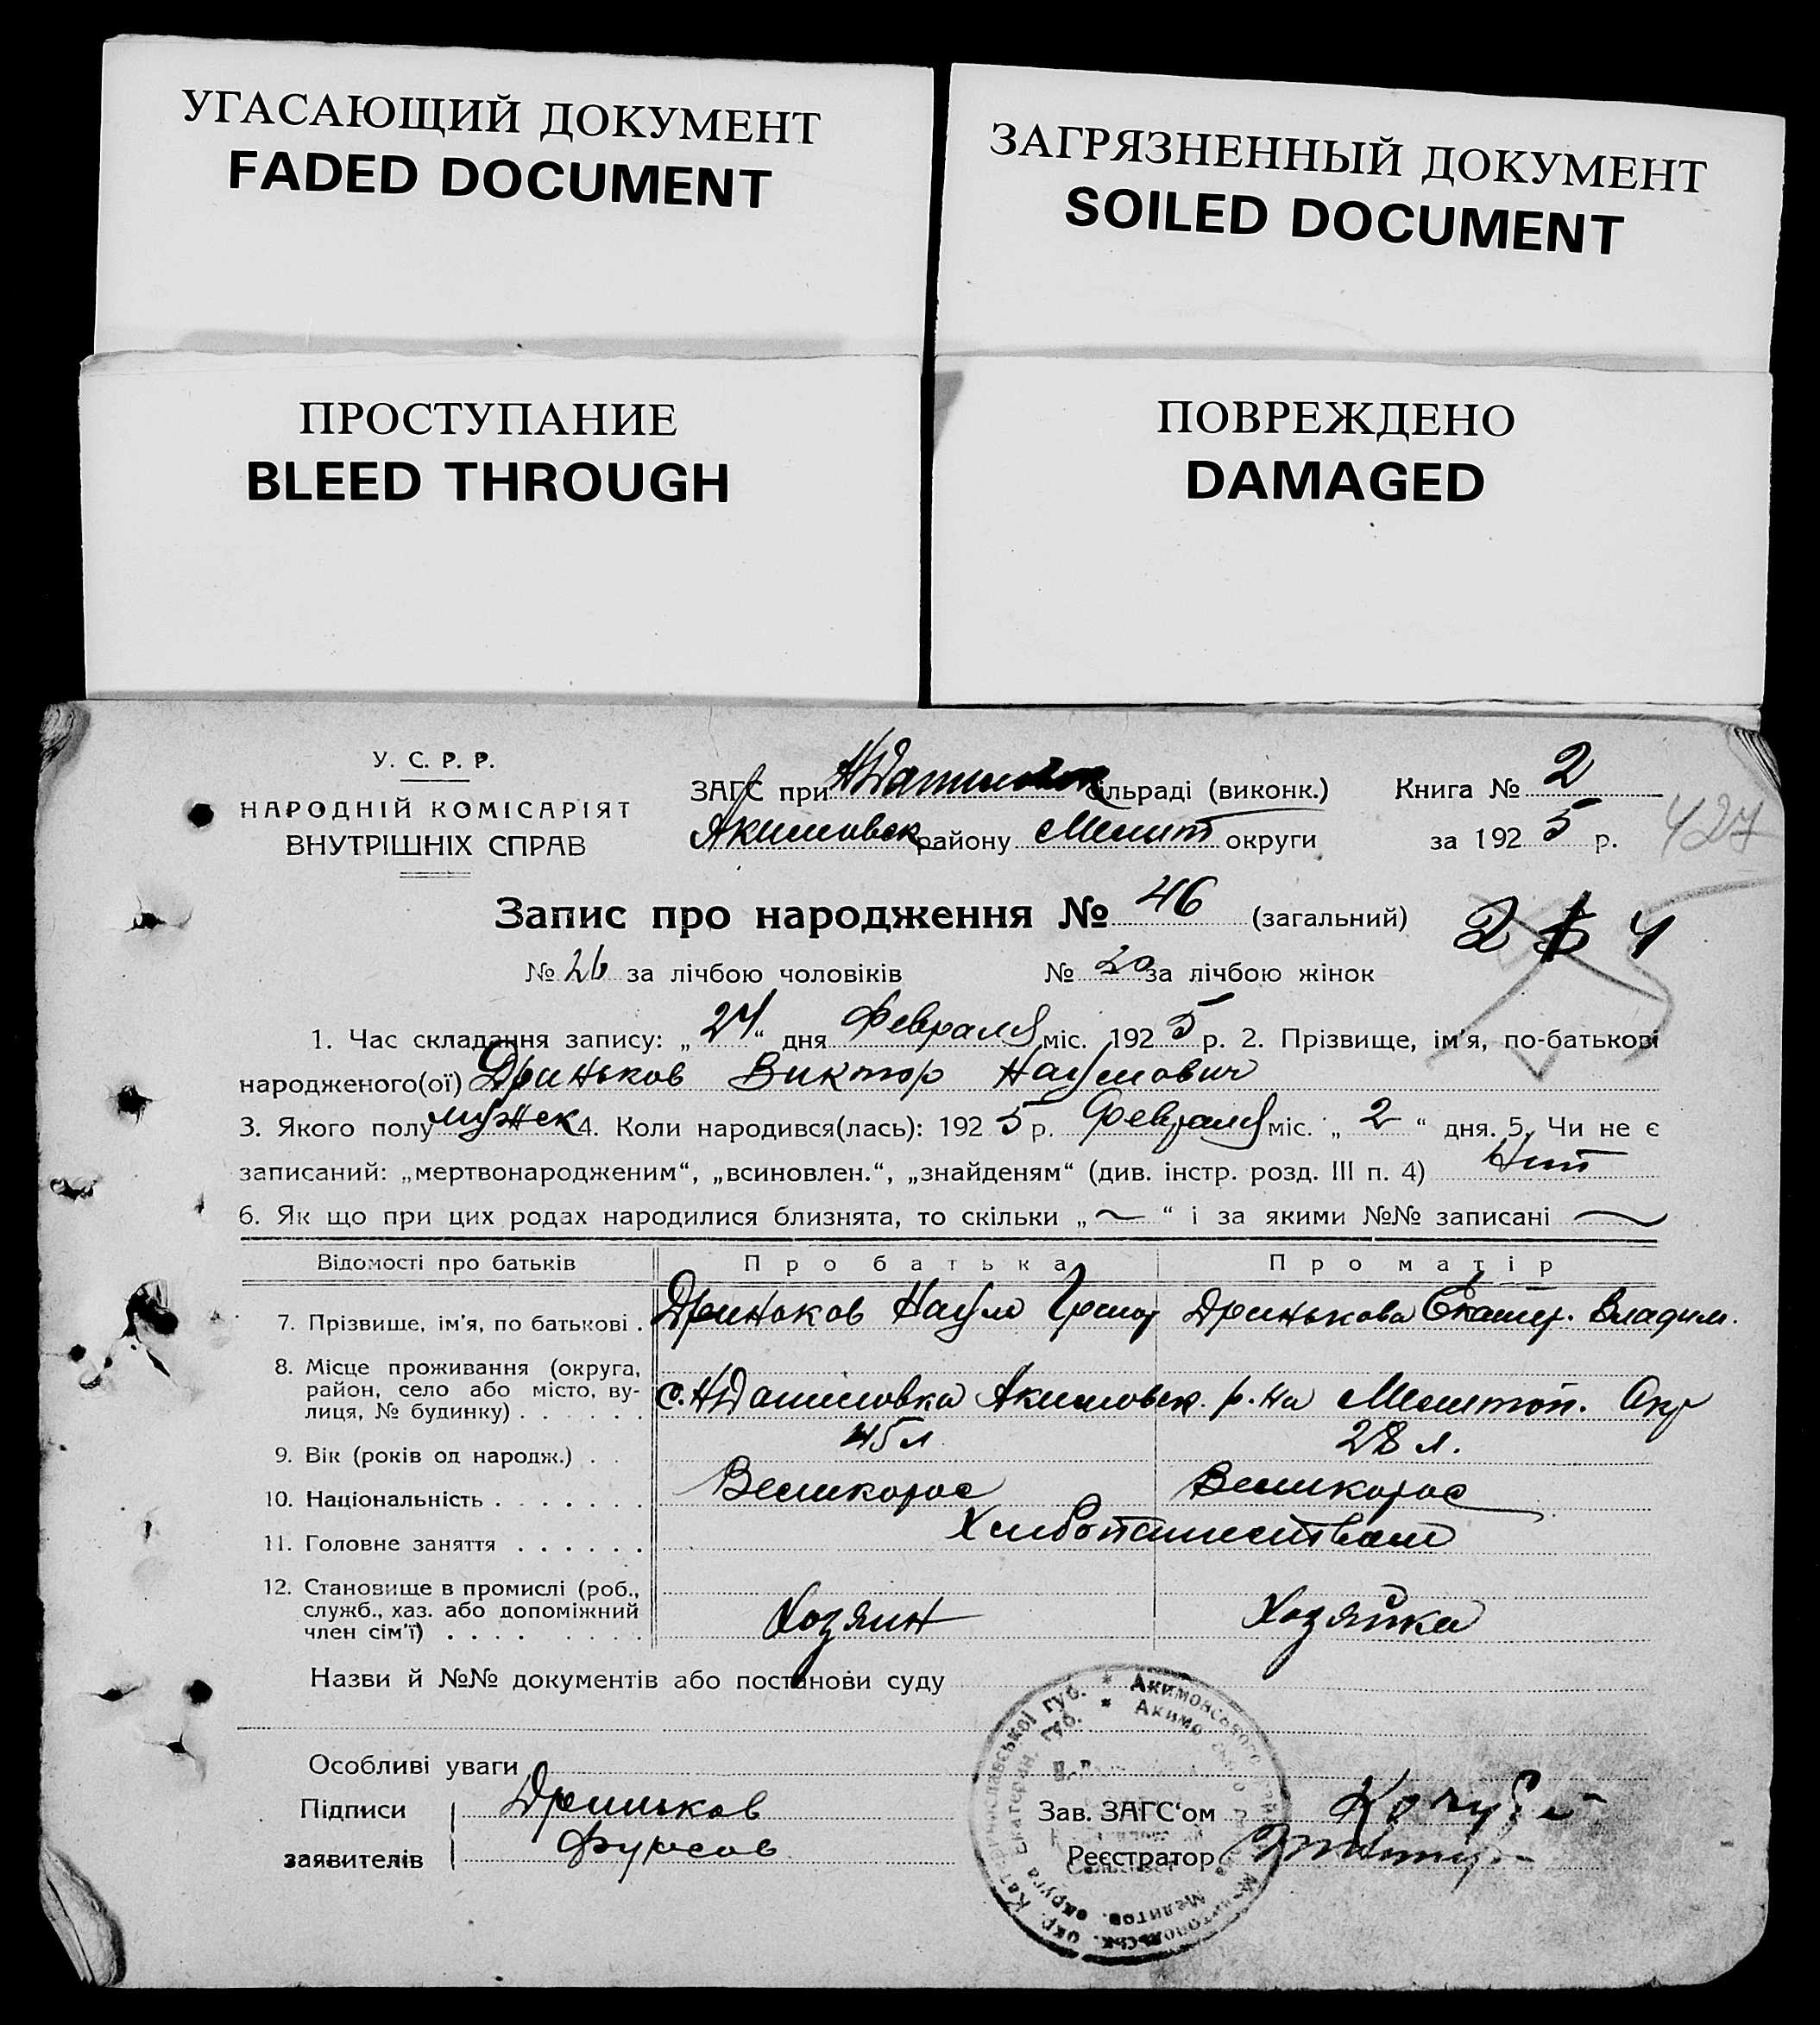 УГАСАЮЩИЙ ДОКУМЕНТ
FADED DOCUMENT
ЗАГРЯЗНЕННЫЙ ДОКУМЕНТ
SOILED DOCUMENT
ПРОСТУПАНИЕ
BLEED THROUGH
ПОВРЕЖДЕНО
DAMAGED
У. С. Р. Р.
НАРОДНІЙ КОМІСАРІЯТ
ВНУТРІШНІХ СПРАВ
ЗАГС при НДаниловск сільраді (виконк.)
Акимовск району Мелит округи
Книга № 2
за 192 5 р.
427
Запис про народження № 46 (загальний)
№ 26 за лічбою чоловіків № 20 за лічбою жінок
1. Час складання запису: „ 24 “ дня Февраля міс. 192 5 р. 2. Прізвище, ім’я, по-батькові
народженого(ої) Дриньков Виктор Наумович
3. Якого полу мужск 4. Коли народився(лась): 192 5 р. Февраля міс. „ 2 “ дня. 5. Чи не є
записаний: „мертвонародженим“, „всиновлен.“, „знайденям“ (див. інстр. розд. III п. 4) Нет
6. Як що при цих родах народилися близнята, то скільки „ ~ “ і за якими №№ записані ~
Відомості про батьків Про батька Про матір
7. Прізвище, ім’я, по батькові . Дриньков Наум Григор Дринькова Екатер. Владим.
8. Місце проживання (округа,
район, село або місто, ву-
лиця, № будинку) . . . . . . с. НДаниловка Акимовск. р-на Мелитоп. Окр
9. Вік (років од народж.) . . 45 л 28 л.
10. Національність . . . . . . . Великорос Великорос
11. Головне заняття . . . . . . Хлебопашеством
12. Становище в промислі (роб.,
служб., хаз. або допоміжний
член сім’ї) . . . . . . . . Хозяин Хозяйка
Назви й №№ документів або постанови суду
Особливі уваги
Підписи Дриньков
заявителів Фурсов
Зав. ЗАГС‘ом Кочубей
Реєстратор